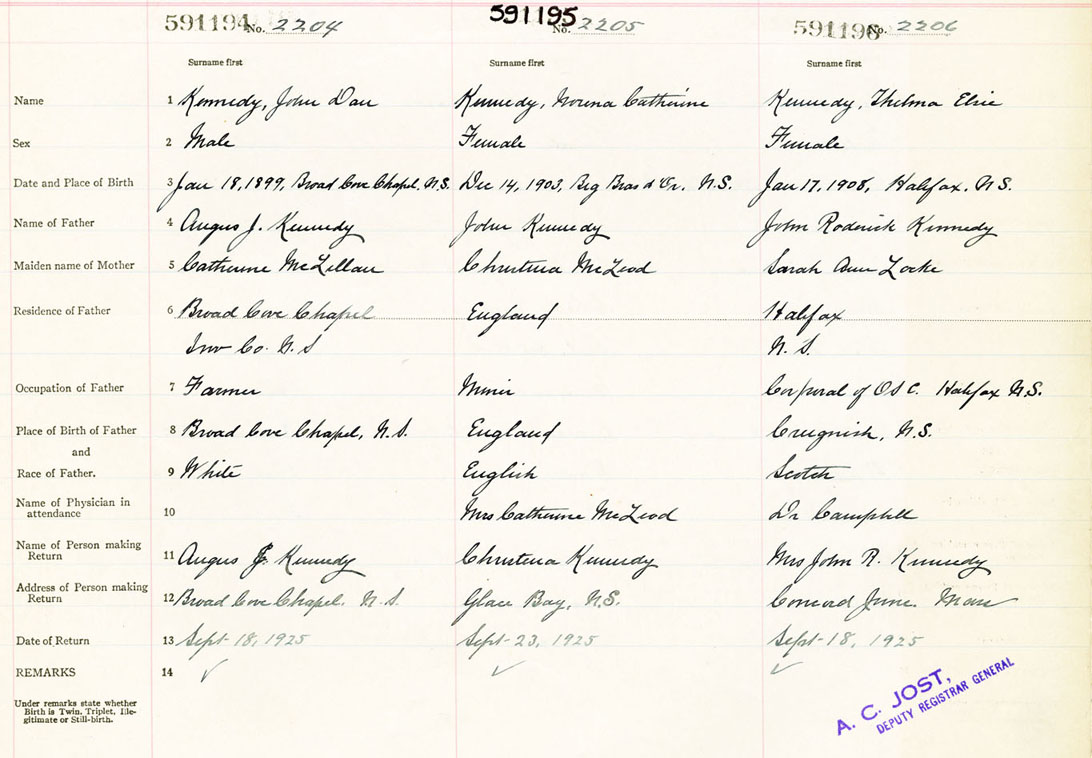 591194 No. 2204 591195 No. 2205 591196 No. 2206
Surname first Surname first Surname first
Name 1 Kennedy, John Dan Kennedy, Norena Catherine Kennedy, Thelma Elsie
Sex 2 Male Female Female
Date and Place of Birth 3 Jan 18, 1899, Broad Cove Chapel, N.S. Dec 14, 1903, Big Bras d'Or, N.S. Jan 17, 1908, Halifax, N.S.
Name of Father 4 Angus J. Kennedy John Kennedy John Roderick Kennedy
Maiden name of Mother 5 Catherine McLellan Christena McLeod Sarah Ann Locke
Residence of Father 6 Broad Cove Chapel England Halifax
Inv Co. N.S N.S.
Occupation of Father 7 Farmer Miner Corporal of OSC. Halifax N.S.
Place of Birth of Father 8 Broad Cove Chapel, N.S. England Creignish, N.S.
and
Race of Father. 9 White English Scotch
Name of Physician in
attendance 10 Mrs Catherine McLeod Dr Campbell
Name of Person making
Return 11 Angus J. Kennedy Christena Kennedy Mrs John R. Kennedy
Address of Person making
Return 12 Broad Cove Chapel. N.S. Glace Bay, N.S. Concord Junc. Mass
Date of Return 13 Sept-18, 1925 Sept-23, 1925 Sept-18, 1925
REMARKS 14 ✓ ✓ ✓
Under remarks state whether
Birth is Twin, Triplet, Ille-
gitimate or Still-birth.
A. C. JOST,
DEPUTY REGISTRAR GENERAL